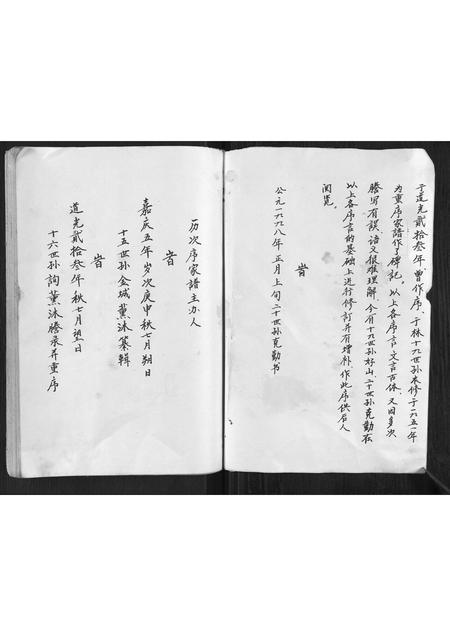 于道光贰拾叁年曾作序、于林十九世孙本修于一九五一年
为重序家谱作了碑记。以上各序言、文言古体、又因多次
誊写有误、语文很难理解、今有十九世孙好山、二十世孙克勤在
以上各序言的基础上进行修订并有增补、作此序供后人
阅览。
旹
公元一九九八年正月上旬二十世孙克勤书
历次序家谱主办人
旹
嘉庆五年岁次庚申秋七月朔日
十五世孙金城薰沐纂辑
旹
道光贰拾叁年秋七月望日
十六世孙詢薰沐誊录并重序